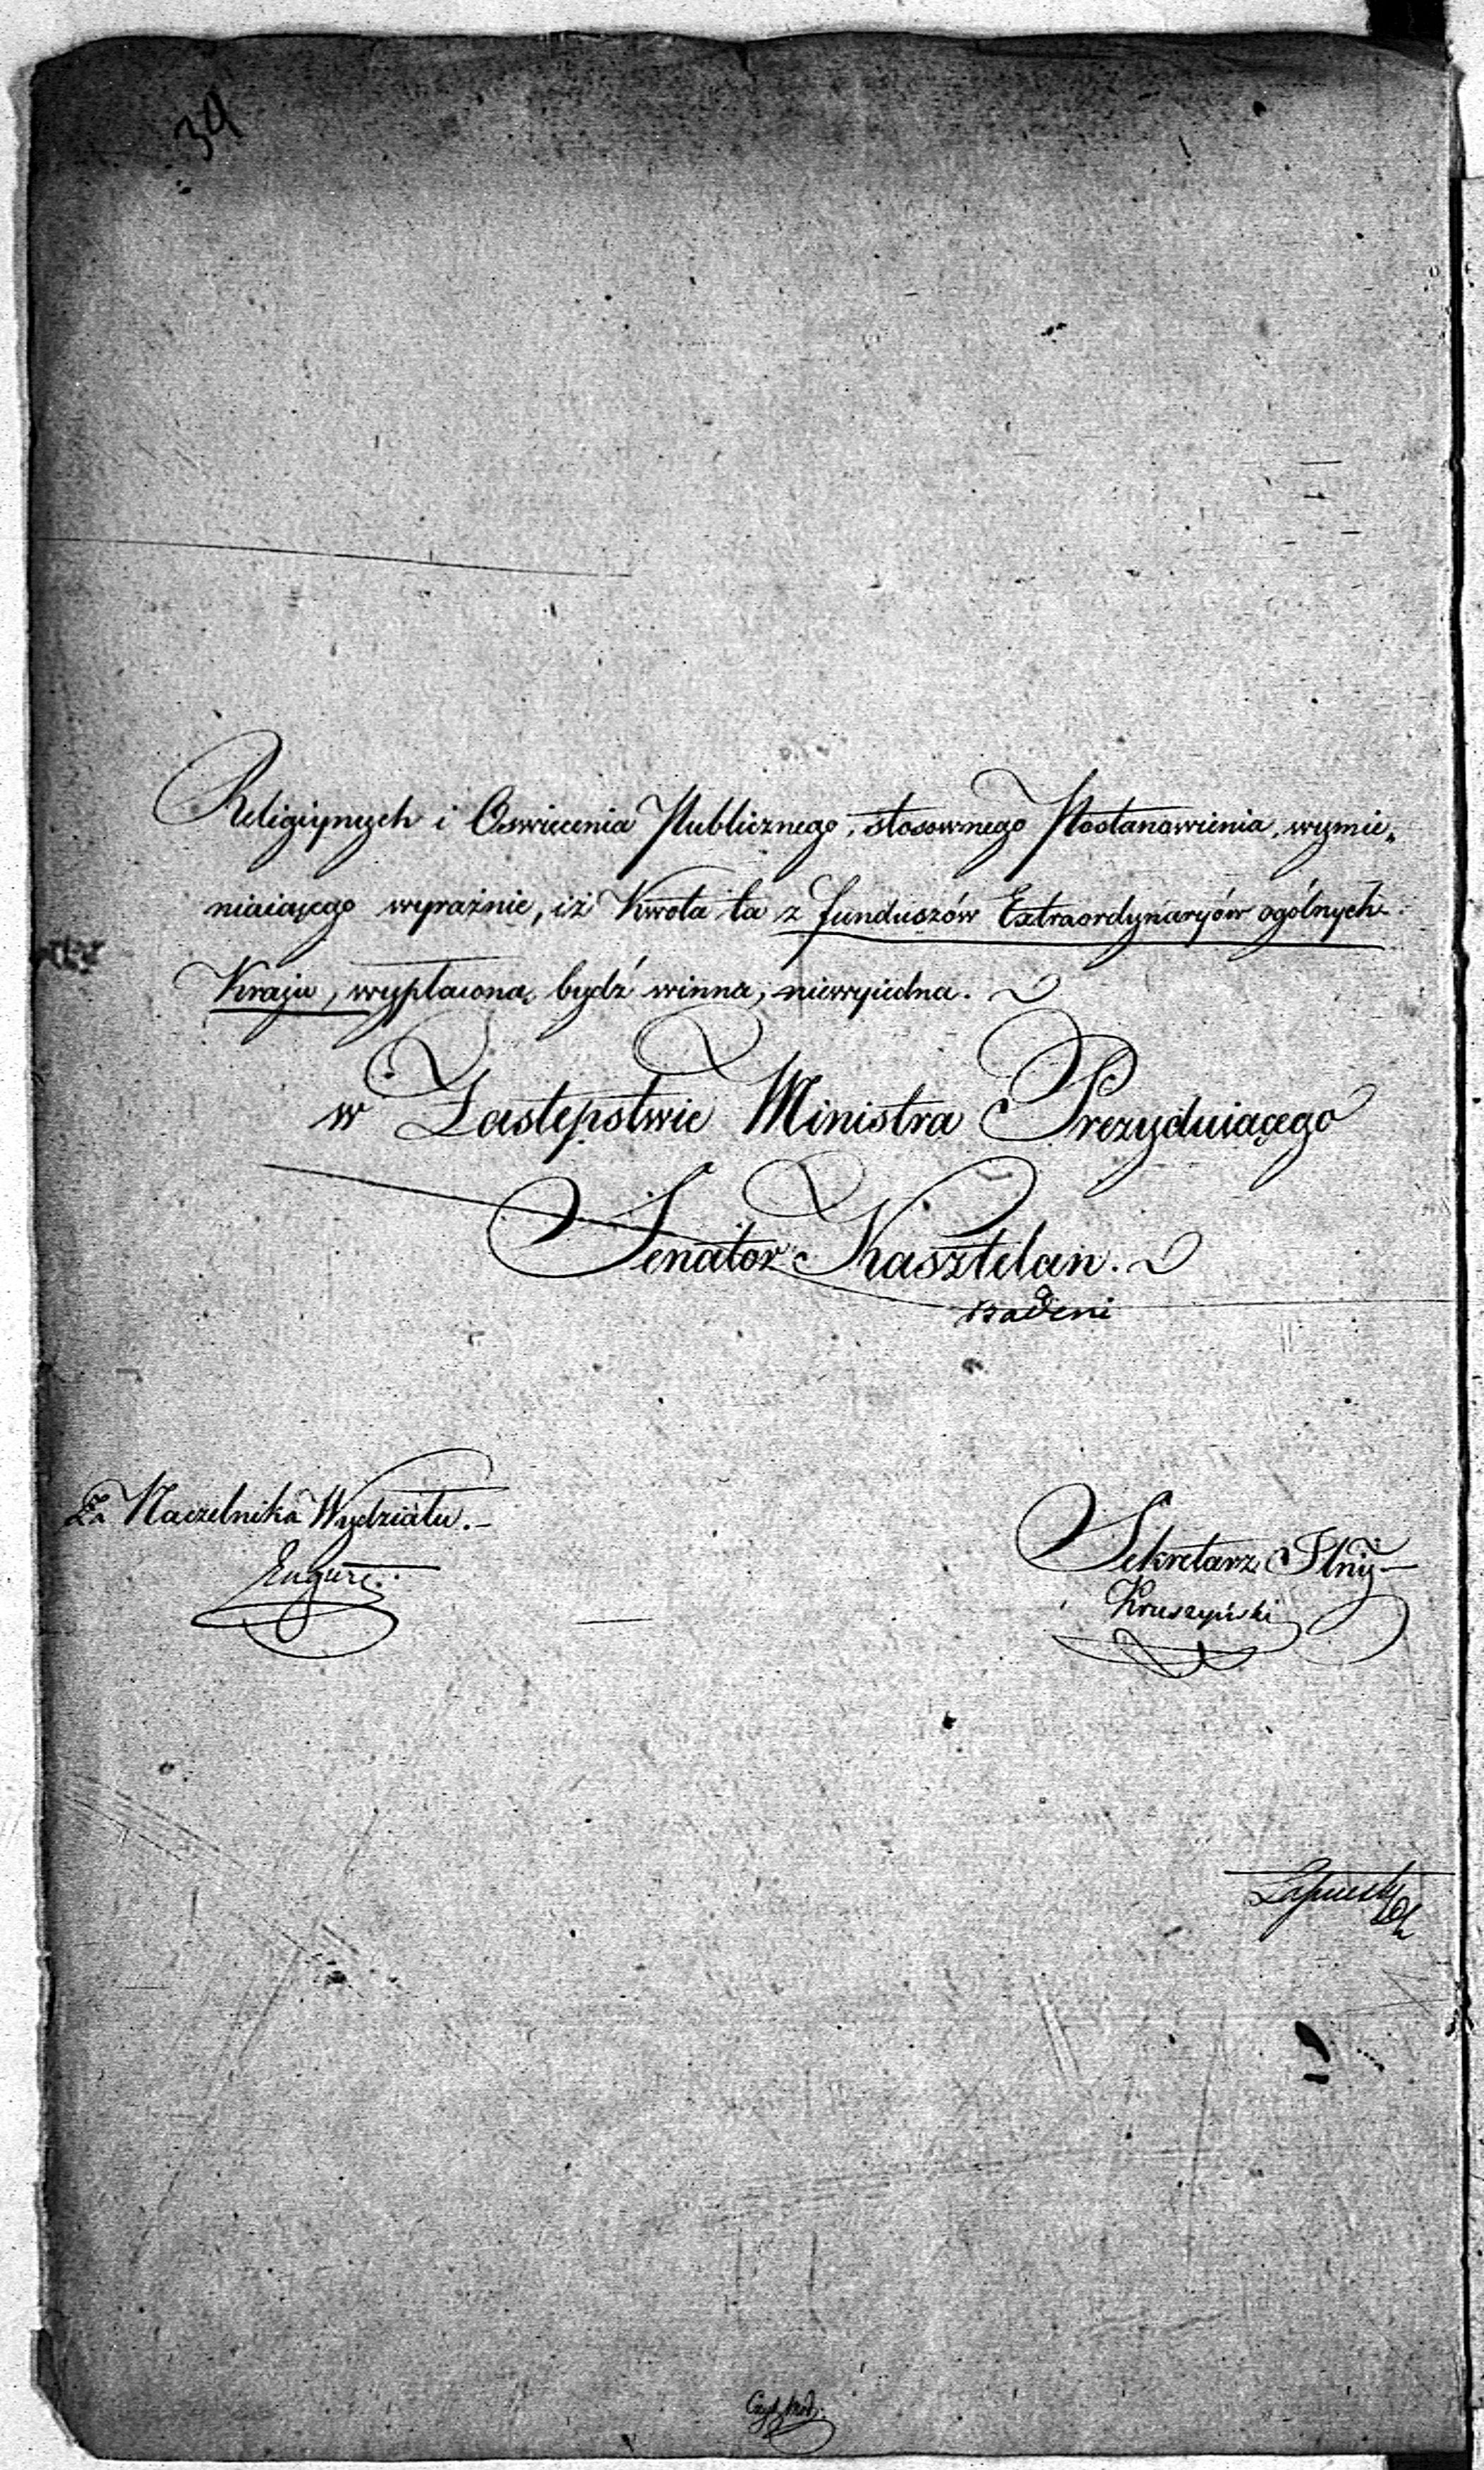 39
Religiynych i Oswiecenia Publicznego, stosownego Postanowienia, wymie„
niaiącego wyraźnie, iż Kwota ta z funduszów Extraordynaryów ogólnych
Kraju, wypłaconą bydź winna, niewyiedna.
w Zastępstwie Ministra Prezyduiącego
Senator Kasztelan.
Badeni
Za Naczelnika Wydziału.
Sekretarz Jlny
Kruszyński